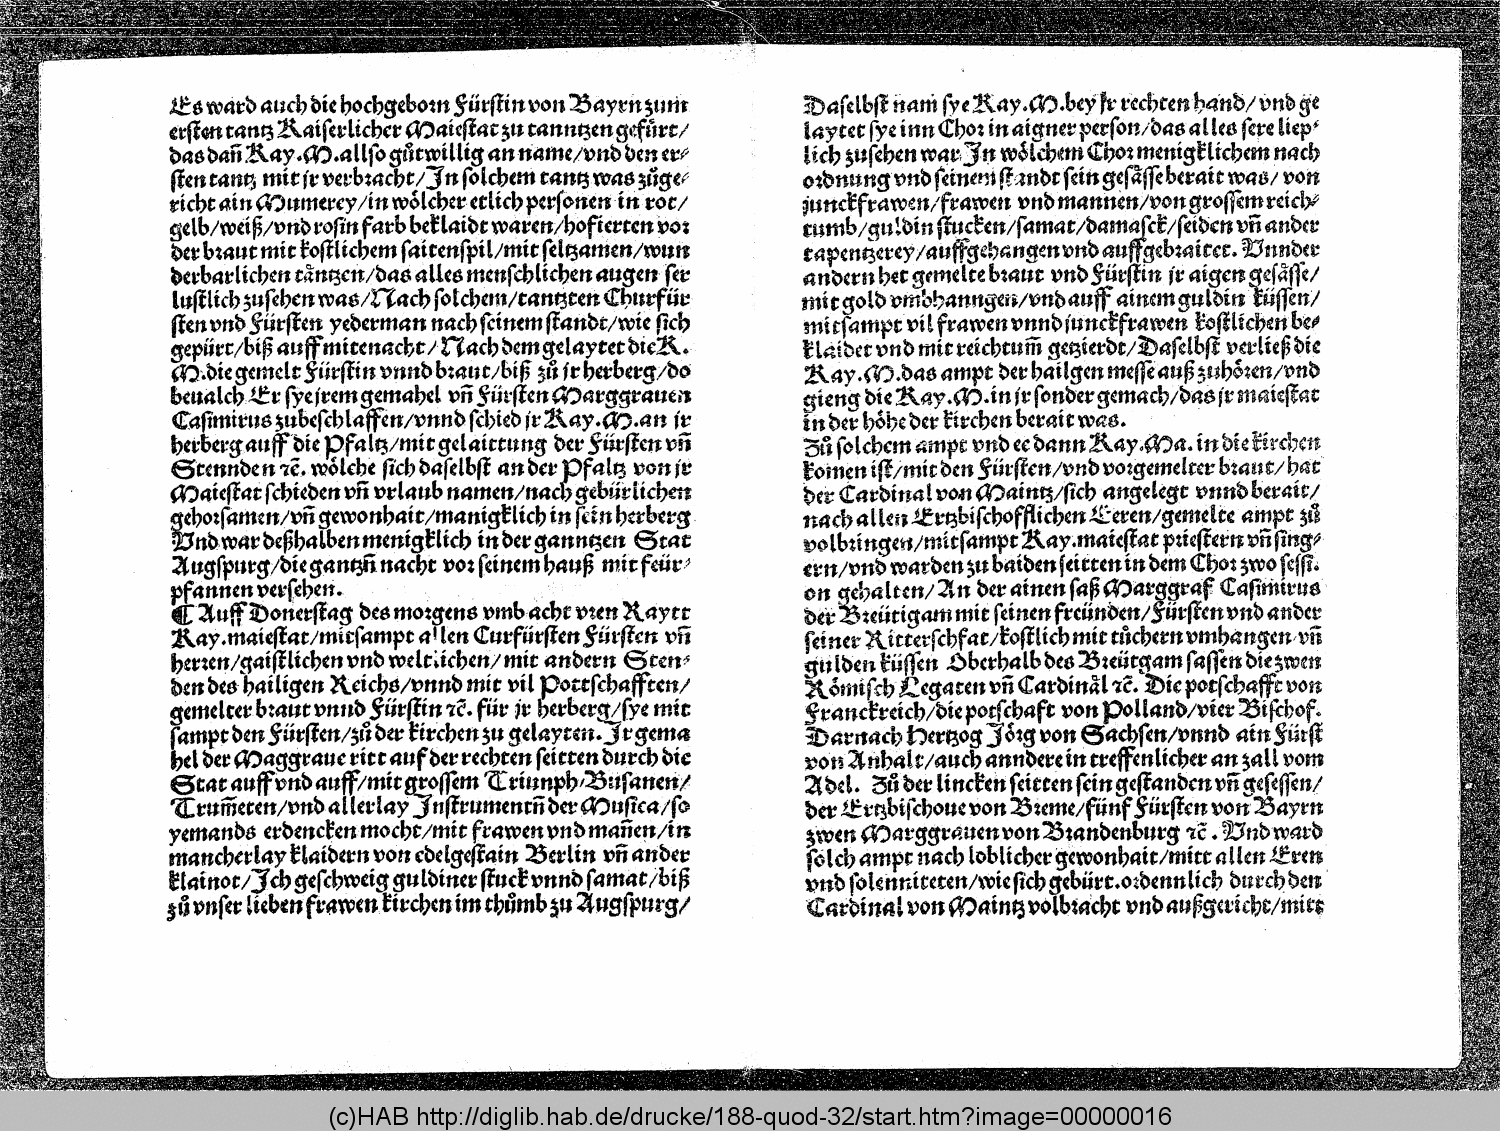 Es ward auch die hochgeborn Fürstin von Bayrn zum
ersten tantz Kaiserlicher Maiestat zu tanntzen gefürt/
das dañ Kay.M.allso gůtwillig an name/vnd den er⸗
sten tantz mit jr verbracht/In solchem tantz was zůge⸗
richt ain Mumerey/in wölcher etlich personen in rot/
gelb/weiß/vnd rosin farb beklaidt waren/hofierten vor
der braut mit kostlichem saitenspil/mit seltzamen/wun
derbarlichen täntzen/das alles menschlichen augen ser
lustlich zusehen was/Nach solchem/tantzten Churfür
sten vnd Fürsten yederman nach seinem standt/wie sich
gepürt/biß auff mitenacht/Nach dem gelaytet die K.
M.die gemelt Fürstin vnnd braut/biß zů jr herberg/do
beualch Er sye jrem gemahel vñ Fürsten Marggrauen
Casimirus zubeschlaffen/vnnd schied jr Kay.M.an jr
herberg auff die Pfaltz/mit gelaittung der Fürsten vñ
Stennden ⁊c̃. wölche sich daselbst an der Pfaltz von jr
Maiestat schieden vñ vrlaub namen/nach gebürlichen
gehorsamen/vñ gewonhait/manigklich in sein herberg
Vnd war deßhalben menigklich in der ganntzen Stat
Augspurg/die gantzñ nacht vor seinem hauß mit feür⸗
pfannen versehen.
¶ Auff Donerstag des morgens vmb acht vren Raytt
Kay.maiestat/mitsampt allen Curfürsten Fürsten vñ
herren/gaistlichen vnd weltlichen/mit andern Sten⸗
den des hailigen Reichs/vnnd mit vil Pottschafften/
gemelter braut vnnd Fürstin ⁊c̃. für jr herberg/sye mit
sampt den Fürsten/zů der kirchen zu gelayten. Ir gema
hel der Maggraue ritt auf der rechten seitten durch die
Stat auff vnd auff/mit grossem Triunph/Busanen/
Trum̃eten/vnd allerlay Instrumentñ der Musica/so
yemands erdencken mocht/mit frawen vnd mañen/in
mancherlay klaidern von edelgestain Berlin vñ ander
klainot/Ich geschweig guldiner stuck vnnd samat/biß
zů vnser lieben frawen kirchen im thůmb zu Augspurg/
Daselbst nam sye Kay.M.bey jr rechten hand/vnd ge
laytet sye inn Chor in aigner person/das alles sere liep⸗
lich zusehen war In wölchem Chor menigklichem nach
ordnung vnd seinem standt sein gesässe berait was/ von
junckfrawen/frawen vnd mannen/von grossem reich⸗
tumb/guldin stucken/samat/damasck/seiden vñ ander
tapentzerey/auffgehangen vnd auffgebraitet. Vnnder
andern het gemelte braut vnd Fürstin jr aigen gesässe/
mit gold vmbhanngen/vnd auff ainem guldin küssen/
mitsampt vil frawen vnnd junckfrawen kostlichen be⸗
klaidet vnd mit reichtum̃ getzierdt/Daselbst verließ die
Kay.M.das ampt der hailgen messe auß zuhören/vnd
gieng die Kay.M.in jr sonder gemach/das jr maiestat
in der höhe der kirchen berait was.
Zů solchem ampt vnd ee dann Kay.Ma. in die kirchen
komen ist/mit den Fürsten/vnd vorgemelter braut/hat
der Cardinal von Maintz/sich angelegt vnnd berait/
nach allen Ertzbischofflichen Eeren/gemelte ampt zů
volbringen/mitsampt Kay.maiestat priestern vñ sing⸗
ern/vnd warden zu baiden seitten in dem Chor zwo sessi.
on gehalten/An der ainen saß Marggraf Casimirus
der Breütigam mit seinen freünden/Fürsten vnd ander
seiner Ritterschfat/kostlich mit tůchern vmhangen vñ
gulden küssen Oberhalb des Breütgam sassen die zwen
Römisch Legaten vñ Cardinäl ⁊c̃. Die potschafft von
Franckreich/die potschaft von Polland/vier Bischof.
Darnach Hertzog Jörg von Sachsen/vnnd ain Fürst
von Anhalt/auch anndere in treffenlicher an zall vom
Adel. Zů der lincken seitten sein gestanden vñ gesessen/
der Ertzbischoue von Breme/fünf Fürsten von Bayrn
zwen Marggrauen von Brandenburg ⁊c̃ . Vnd ward
solch ampt nach loblicher gewonhait/mitt allen Eren
vnd solenniteten/wie sich gebürt.ordennlich durch den
Cardinal von Maintz volbracht vnd außgericht/mitt
(c)HAB http://diglib.hab.de/drucke/188-quod-32/start.htm?image=00000016